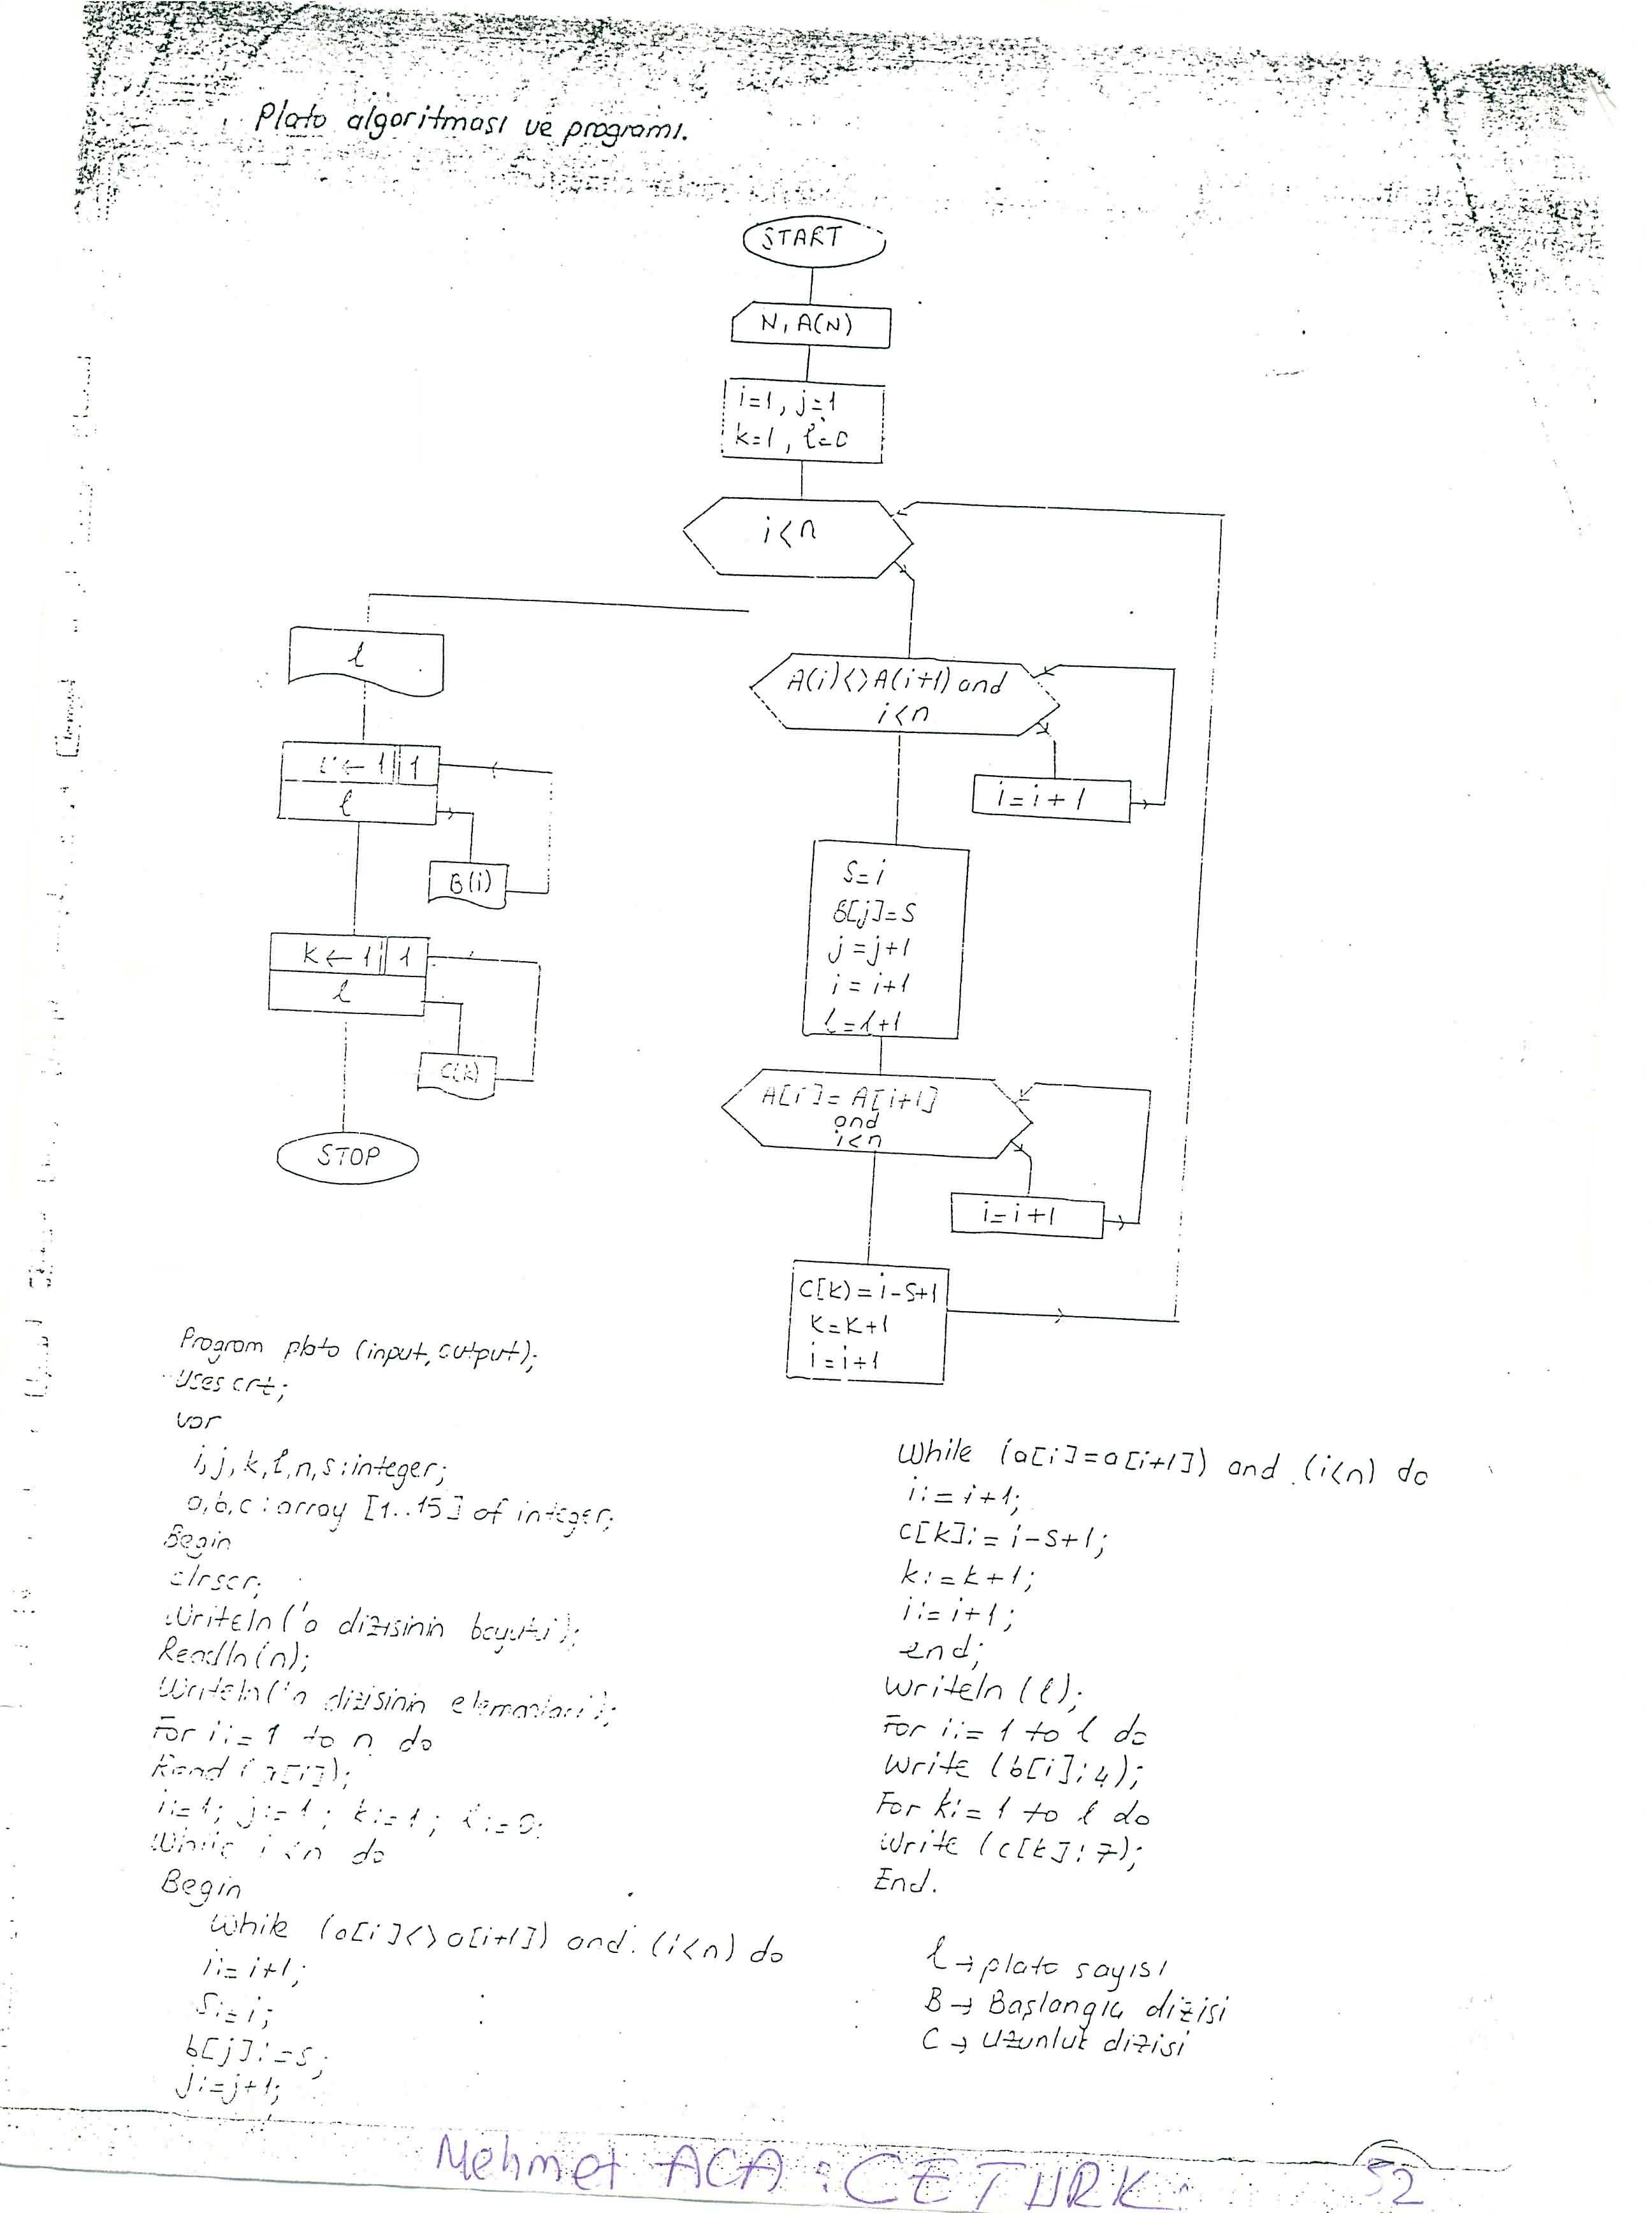 Plato algoritması ve programı.
START
N, A(N)
i=1, j=1
k=1, l=0
i<n
A(i)<>A(i+1) and
i<n
i=i+1
S=i
B[j]=S
j=j+1
i=i+1
l=l+1
A[i]=A[i+1]
and
i<n
i=i+1
C[k)=i-S+1
k=k+1
i=i+1
l
i←1 1
l
B(i)
k←1 1
l
C(k)
STOP
Program plato (input, output);
Uses crt;
var
i,j,k,l,n,s:integer;
a,b,c:array [1..15] of integer;
Begin
clrscr;
Writeln('a dizisinin boyutu');
Readln(n);
Writeln('a dizisinin elemanları');
For i:=1 to n do
Read (a[i]);
i:=1; j:=1; k:=1; l:=0;
While i<n do
Begin
While (a[i]<>a[i+1]) and (i<n) do
i:=i+1;
S:=i;
b[j]:=s;
j:=j+1;
While (a[i]=a[i+1]) and (i<n) do
i:=i+1;
c[k]:=i-s+1;
k:=k+1;
i:=i+1;
end;
Writeln (l);
For i:=1 to l do
Write (b[i]:4);
For k:=1 to l do
Write (c[k]:7);
End.
l→plato sayısı
B→ Başlangıç dizisi
C→ Uzunluk dizisi
Mehmet ACA : CETURK
52